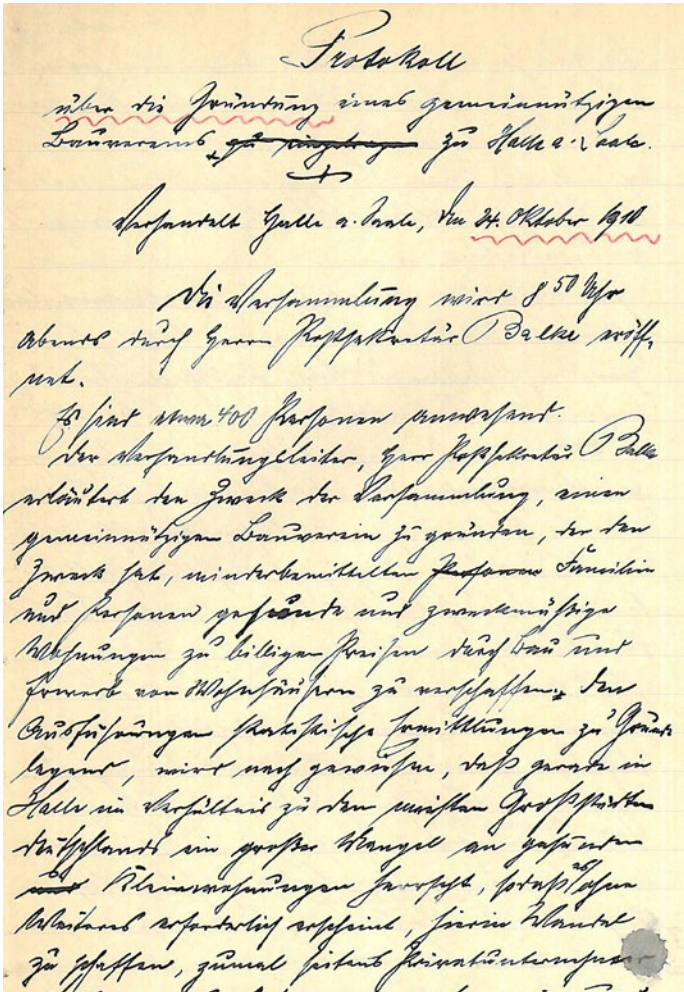 Protokoll
über die Gründung eines gemeinnützigen
Bauvereins zu Halle a. Saale.
Verhandelt Halle a. Saale, den 24. Oktober 1910
Die Versammlung wird 8 50 Uhr
abends durch Herrn Postsekretär Balke eröff-
net.
Es sind etwa 400 Personen anwesend.
Der Verhandlungsleiter, Herr Postsekretär Balke
erläutert den Zweck der Versammlung, einen
gemeinnützigen Bauverein zu gründen, der den
Zweck hat, minderbemittelten Personen Familien
und Personen gesunde und zweckmäßige
Wohnungen zu billigen Preisen durch Bau und
Erwerb von Wohnhäusern zu verschaffen. Den
Ausführungen statistische Ermittlungen zu Grunde
legend, wird nach gewiesen, daß gerade in
Halle im Verhältnis zu den meisten Großstädten
Deutschlands ein großer Mangel an gesunden
und Kleinwohnungen herrscht, sodaß es ohne
Weiteres erforderlich erscheint, hierin Wandel
zu schaffen, zumal seitens Privatunternehmer